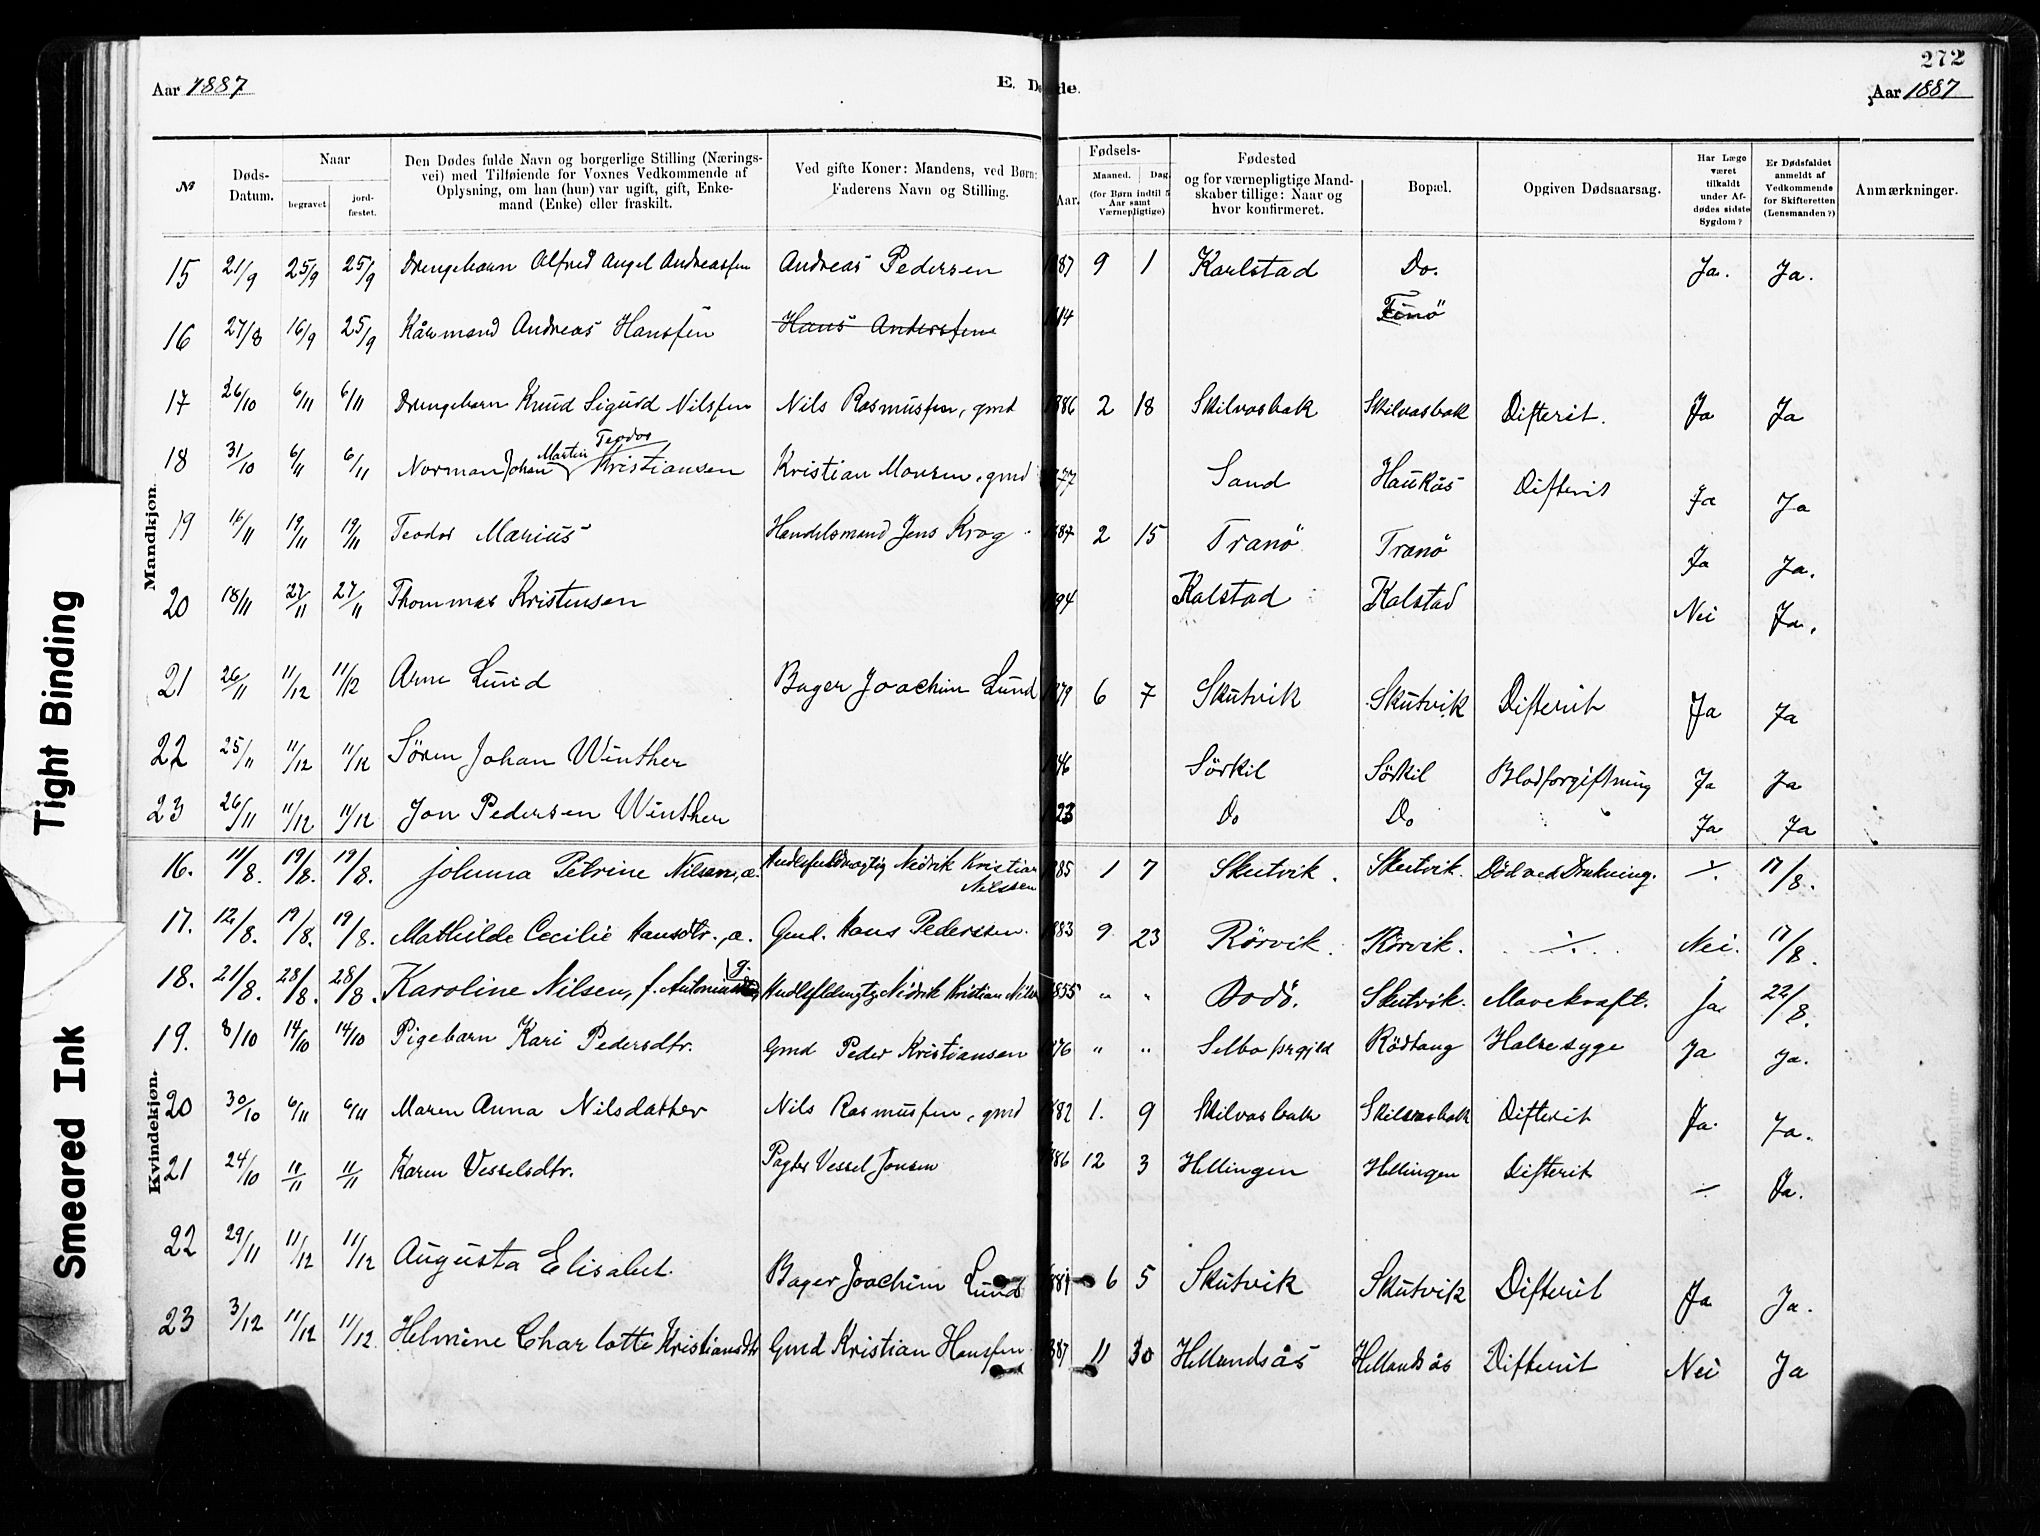 272
Aar 1887
E. Døde.
Aar 1887
№
Døds-Datum.
Naar
begravet
jord-fæstet.
Den Dødes fulde Navn og borgerlige Stilling (Nærings-
vei) med Tilføiende for Voxnes Vedkommende af
Oplysning, om han (hun) var ugift, gift, Enke-
mand (Enke) eller fraskilt.
Ved gifte Koner: Mandens, ved Børn:
Faderens Navn og Stilling.
Fødsels-
Aar.
Maaned. Dag.
(for Børn indtil 5
Aar samt
Værnepligtige)
Fødested
og for værnepligtige Mand-
skaber tillige: Naar og
hvor konfirmeret.
Bopæl.
Opgiven Dødsaarsag.
Har Læge
været
tilkaldt
under Af-
dødes sidste
Sygdom?
Er Dødsfaldet
anmeldt af
Vedkommende
for Skifteretten
(Lensmanden?)
Anmærkninger.
Mandkjøn.
15 21/9 25/9 25/9 Drengebarn Alfred Angel Andreassen Andreas Pedersen 1887 9 1 Karlstad Do. Ja. Ja.
16 27/8 16/9 25/9 Kårmand Andreas Hanssen Hans Anderssen 14 Finö
17 26/10 6/11 6/11 Drengebarn Knud Sigurd Nilssen Nils Rasmussen, gmd 1886 2 18 Skilvasbak Skilvasbak Difterit. Ja Ja
18 31/10 6/11 6/11 Norman Johan Martin Teodor Kristiansen Kristian Monsen, gmd 77 Sand Haukås Difterit Ja Ja
19 16/11 19/11 19/11 Teodor Marius Handelsmand Jens Krog 1887 2 15 Tranö Tranö Ja Ja.
20 18/11 27/11 27/11 Thommas Kristensen 94 Kalstad Kalstad Nei Ja.
21 26/11 11/12 11/12 Arne Lund Bager Joachim Lund 79 6 7 Skutvik Skutvik Difterit Ja Ja
22 25/11 11/12 11/12 Sören Johan Winther 46 Sörkil Sörkil Blodforgiftning Ja Ja
23 26/11 11/12 11/12 Jon Pedersen Winther 23 Do Do Ja Ja
Kvindekjøn.
16. 11/8. 19/8. 19/8. Johnna Petrine Nilsen, æ. Handlsfuldmægtig Nidrik Kristian Nilssen 1885 1 7 Skutvik. Skutvik. Död ved Drukning. ⁒ 17/8.
17. 12/8. 19/8. 19/8. Mathilde Cecilie Hansdtr., æ. Gmd. Hans Pederssen. 1883 9 23 Rörvik. Rörvik. ⁒ Nei. 17/8.
18. 21/8. 28/8. 28/8. Karoline Nilsen, f. g. Handlsfldmgtg Nidrik Kristian Nils 1855 " " Bodö. Skutvik. Mavekræft. Ja 22/8.
19. 8/10 14/10 14/10 Pigebarn Kari Pedersdtr. Gmd Peder Kristiansen 76 " " Selbo prgjld Rödtang Halsesyge Ja Ja.
20 30/10 6/11 6/11 Maren Anna Nilsdatter Nils Rasmussen, gmd 1882 1. 9 Skilvasbak Skilvasbak Difterit Ja. Ja.
21 24/10 11/11 11/11 Karen Vesselsdtr. Pagter Vessel Jonsen 86 12 3 Hellingen Hellingen Difterit ⁒ Ja.
22 29/11 11/12 11/12 Augusta Elisabet. Bager Joachim Lund 6 5 Skutvik Skutvik Difterit Ja Ja.
23 3/12 11/12 11/12 Helmine Charlotte Kristiansdtr Gmd Kristian Hanssen 87 11 30 Hellandsås Hellandsås Difterit Nei Ja
Tight Binding
Smeared Ink